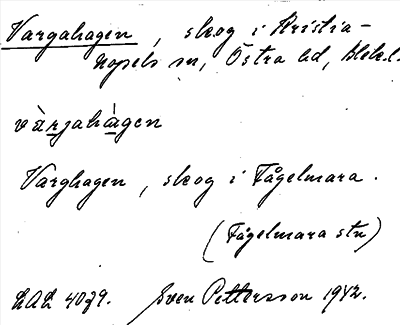 Vargahagen, skog i Kristia-
nopels sn, Östra hd, Blek.l.
vàrjahàgen
Varghagen, skog i Fågelmara.
(Fågelmara stn)
LAL 4079. Sven Pettersson 1942.